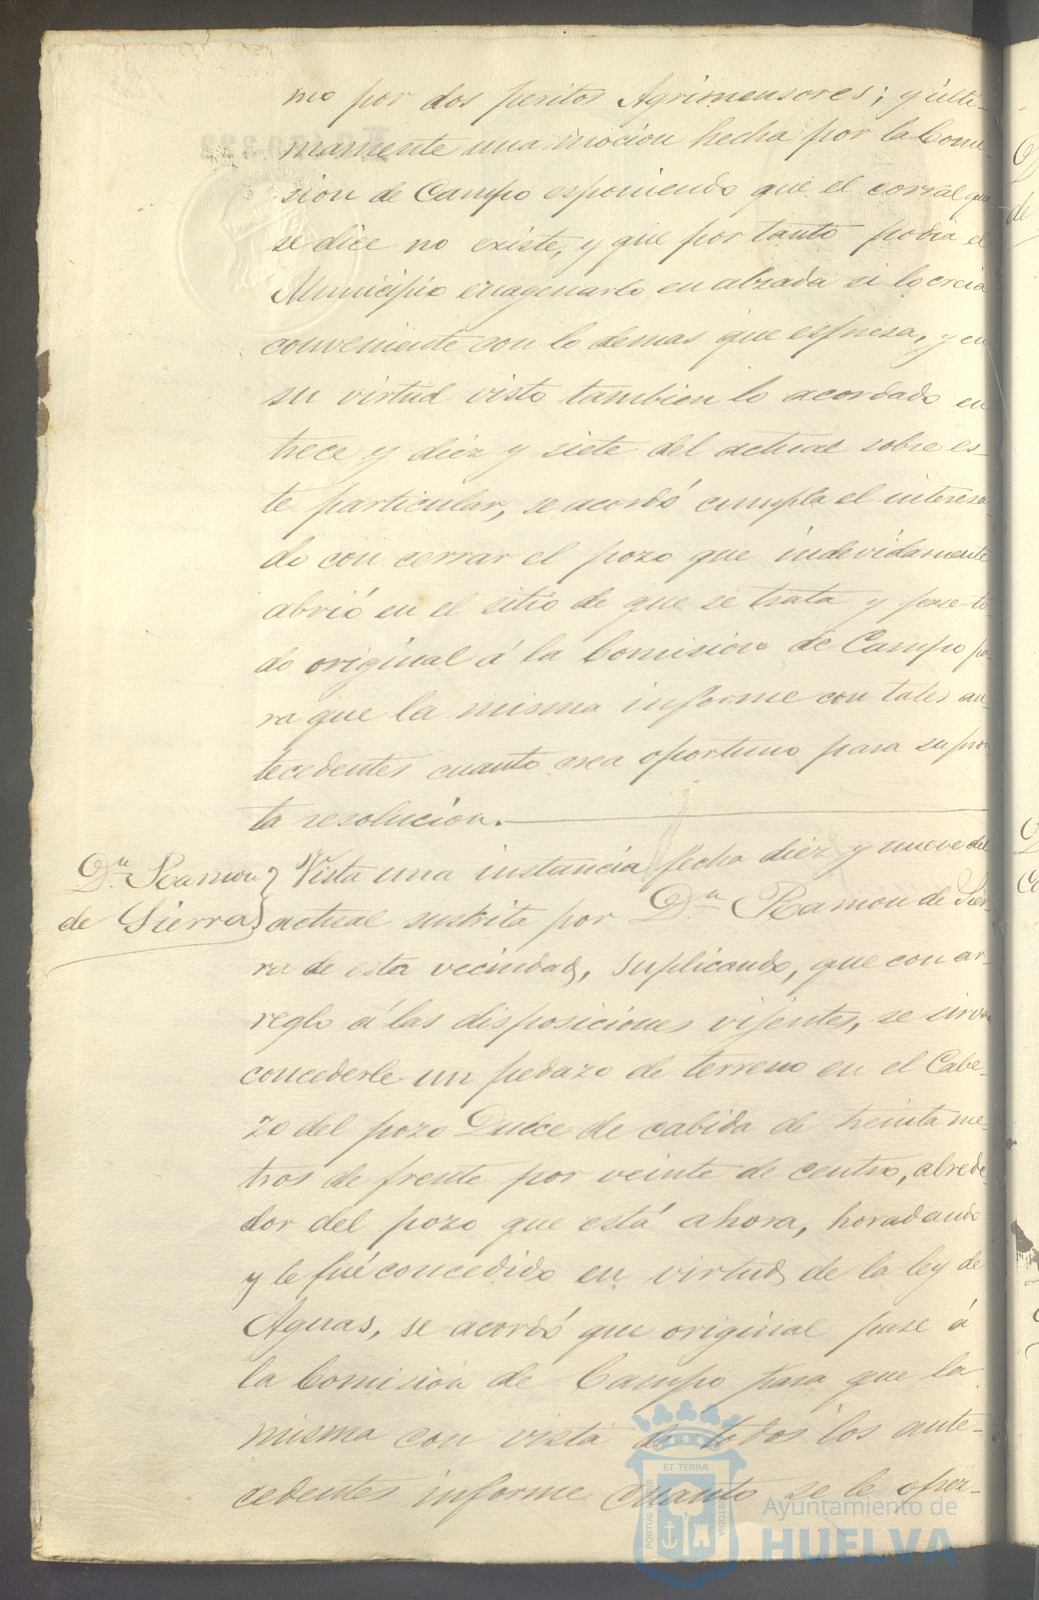 mo por dos peritos Agrimensores; y ulti-
mamente una mocion hecha por la Comi-
sion de Campo esponiendo que el corral que
se dice no existe, y que por tanto podia el
Municipio enagenarlo en alzada si lo creia
conveniente con lo demas que espresa, y en
su virtud visto tambien lo acordado en
trece y diez y siete del actual sobre es-
te particular, se acordó cumpla el interesa-
do con cerrar el pozo que indevidamente
abrió en el sitio de que se trata y pase to-
do original á la Comision de Campo pa-
ra que la misma informe con tales an-
tecedentes cuanto crea oportuno para su pron-
ta resolucion.
Dn. Ramon
de Sierra
Vista una instancia fecha diez y nueve del
actual suscrita por Dn. Ramon de Sier-
ra de esta vecindad, suplicando, que con ar-
reglo á las disposiciones vijentes, se sirva
concederle un pedazo de terreno en el Cabe-
zo del pozo Dulce de cabida de treinta me-
tros de frente por veinte de centro, alrede-
dor del pozo que está ahora, horadando
y le fué concedido en virtud de la ley de
Aguas, se acordó que original pase á
la Comision de Campo para que la
misma con vista de todos los ante-
cedentes informe cuanto se le ofrez-
ET TERRÆ
PORTUS MARIS
CUSTODIA
Ayuntamiento de
HUELVA